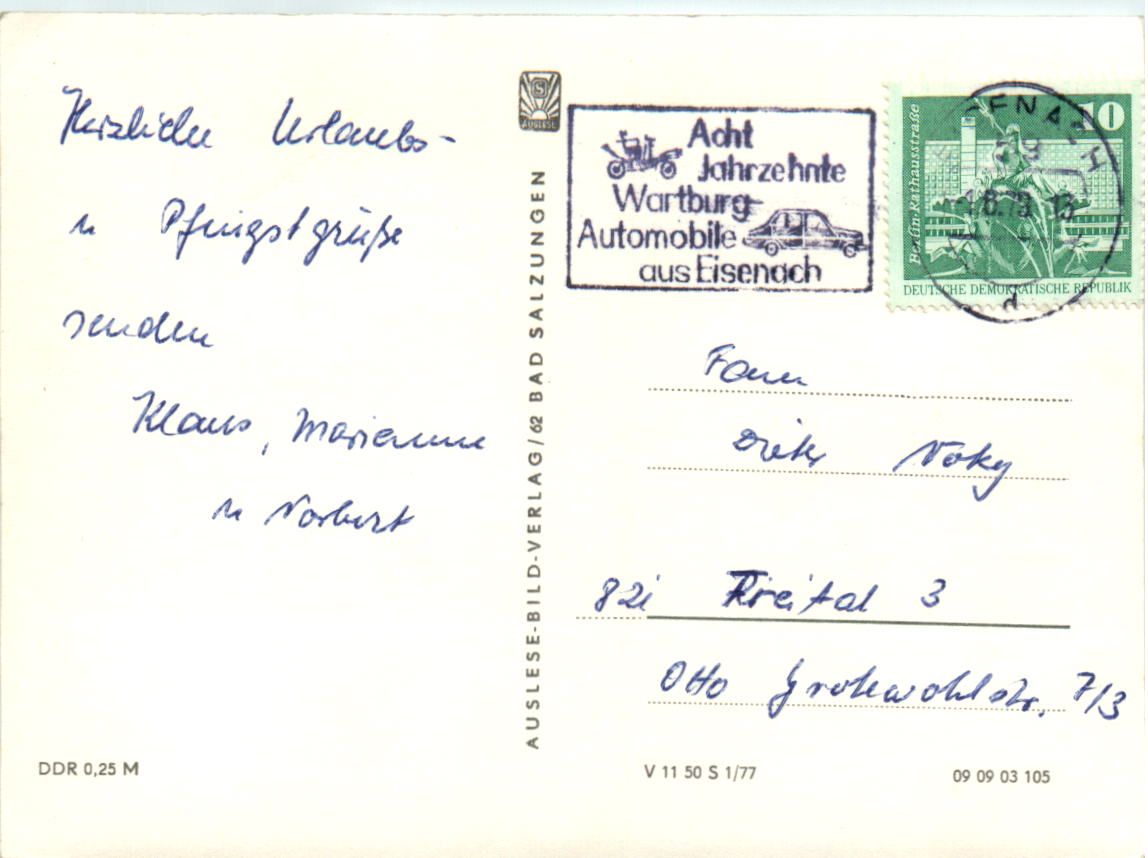 Herzliche Urlaubs-
u Pfingstgrüße
senden
Klaus, Marianne
u Norbert
S
AUSLESE
AUSLESE-BILD-VERLAG/62 BAD SALZUNGEN
Acht
Jahrzehnte
Wartburg
Automobile
aus Eisenach
Berlin · Rathausstraße
10
DEUTSCHE DEMOKRATISCHE REPUBLIK
ENACH
d
Fam
Dieter
821 Freital 3
Otto Grotewohlstr. 7/3
DDR 0,25 M
V 11 50 S 1/77
09 09 03 105